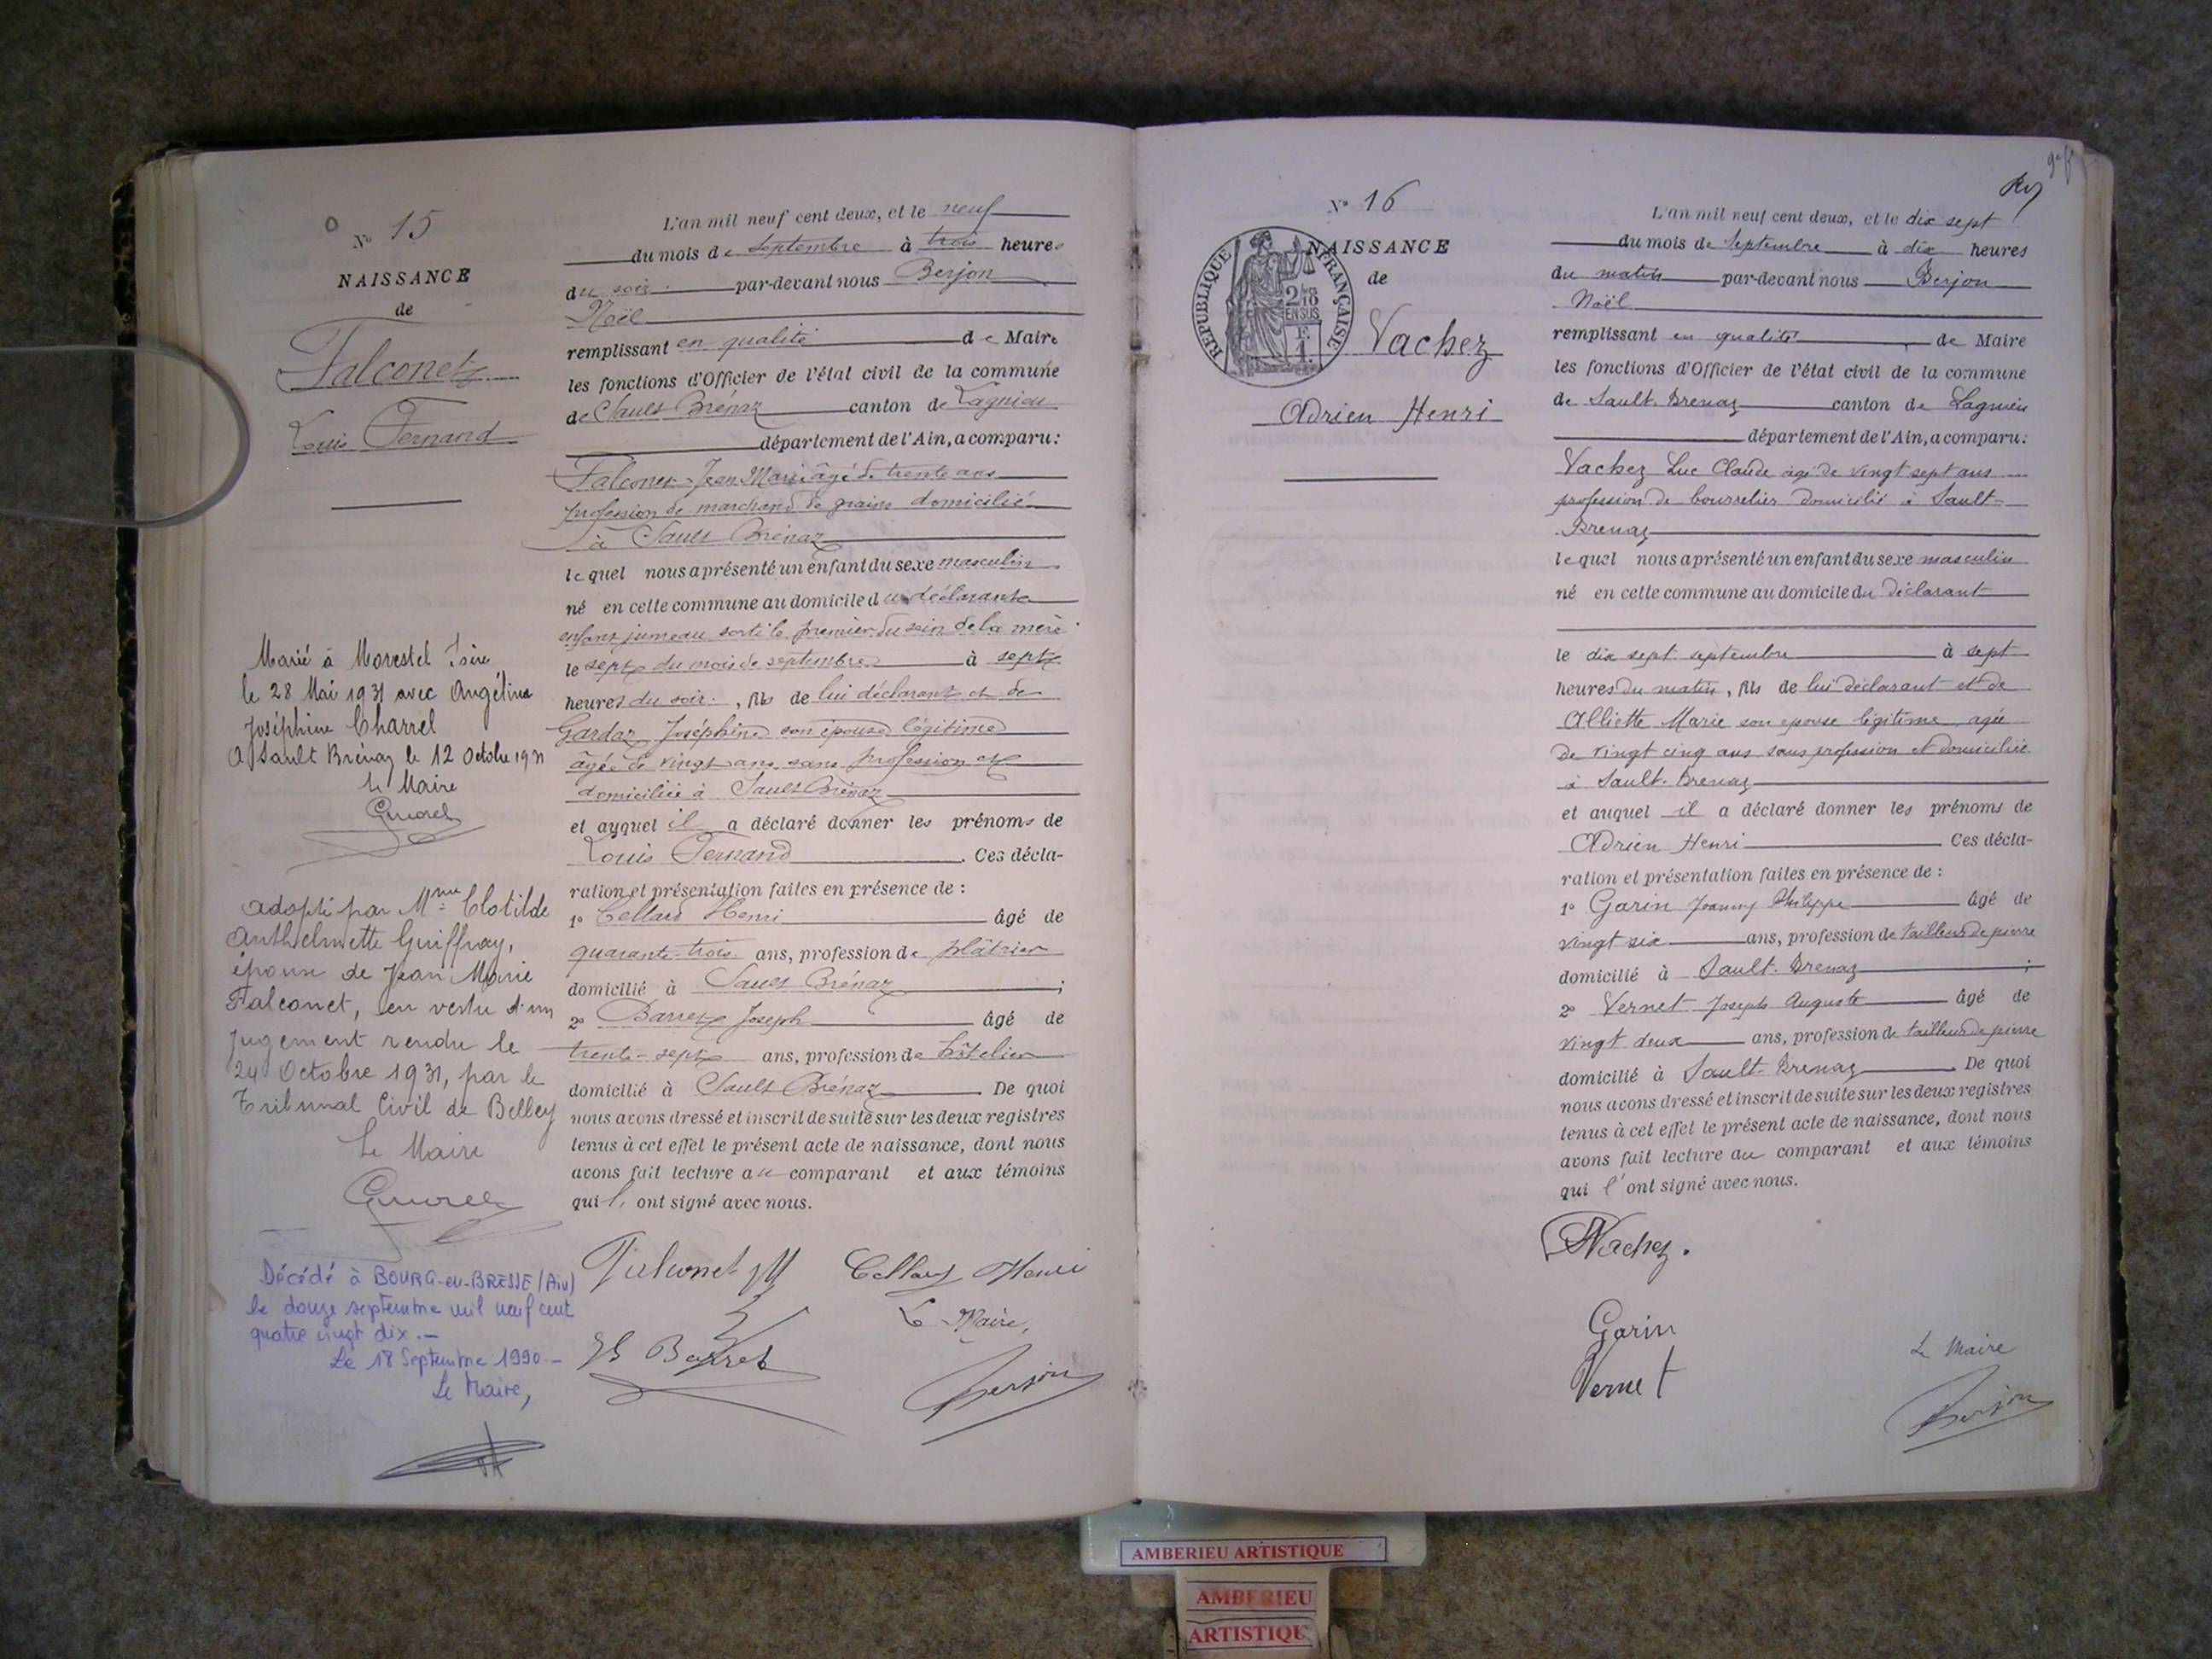 N° 15
NAISSANCE
de
Falconet
Louis Fernand
Marié à Morestel Isère
le 28 Mai 1931 avec Angélina
Joséphine Charrel
A Sault Brénaz le 12 Octobre 1931
Le Maire
adopté par Mme Clotilde
Anthelmette Guiffray,
épouse de Jean Marie
Falconet, en vertu d'un
jugement rendu le
24 Octobre 1931, par le
Tribunal Civil de Belley
Le Maire
Décédé à BOURG-en-BRESSE (Ain)
le douze septembre mil neuf cent
quatre vingt dix.-
Le 18 Septembre 1990.-
Le Maire,
L'an mil neuf cent deux, et le neuf
du mois de septembre à trois heures
du soir. par-devant nous Berjon
Noël
remplissant en qualité de Maire
les fonctions d'Officier de l'état civil de la commune
de Sault Brénaz canton de Lagnieu
département de l'Ain, a comparu:
Falconet Jean Marie âgé de trente ans
profession de marchand de grains domicilié
à Sault Brénaz
lequel nous a présenté un enfant du sexe masculin
né en cette commune au domicile du déclarant
enfant jumeau sorti le premier du sein de la mère
le sept du mois de septembre à sept
heures du soir. , fils de lui déclarant et de
Gardaz Joséphine son épouse légitime
âgée de vingt ans sans profession et
domiciliée à Sault Brénaz
et auquel il a déclaré donner les prénoms de
Louis Fernand . Ces décla-
ration et présentation faites en présence de :
1° Cellard Henri âgé de
quarante-trois ans, profession de plâtrier
domicilié à Sault Brénaz ;
2° Barret Joseph âgé de
trente-sept ans, profession de hôtelier
domicilié à Sault Brénaz . De quoi
nous avons dressé et inscrit de suite sur les deux registres
tenus à cet effet le présent acte de naissance, dont nous
avons fait lecture au comparant et aux témoins
qui l' ont signé avec nous.
Falconet JM Cellard Henri
Le Maire,
Barret
Berjon
N° 16
NAISSANCE
de
REPUBLIQUE FRANÇAISE
2/10
EN SUS
Vachez
Adrien Henri
L'an mil neuf cent deux, et le dix sept
du mois de Septembre à dix heures
du matin par-devant nous Berjon
Noël
remplissant en qualité de Maire
les fonctions d'Officier de l'état civil de la commune
de Sault-Brenaz canton de Lagnieu
département de l'Ain, a comparu:
Vachez Luc Claude âgé de vingt sept ans
profession de bourrelier domicilié à Sault-
Brenaz
lequel nous a présenté un enfant du sexe masculin
né en cette commune au domicile du déclarant
le dix sept septembre à sept
heures du matin , fils de lui déclarant et de
Alliette Marie son épouse légitime agée
de vingt cinq ans sans profession et domiciliée
à Sault-Brenaz
et auquel il a déclaré donner les prénoms de
Adrien Henri Ces décla-
ration et présentation faites en présence de :
1° Garin Joanny Philippe âgé de
vingt six ans, profession de tailleur de pierre
domicilié à Sault-Brenaz ;
2° Vernet Joseph Auguste âgé de
vingt deux ans, profession de tailleur de pierre
domicilié à Sault-Brenaz . De quoi
nous avons dressé et inscrit de suite sur les deux registres
tenus à cet effet le présent acte de naissance, dont nous
avons fait lecture au comparant et aux témoins
qui l' ont signé avec nous.
Vachez.
Garin
Vernet
Le Maire
Berjon
AMBERIEU ARTISTIQUE
AMBERIEU
ARTISTIQUE